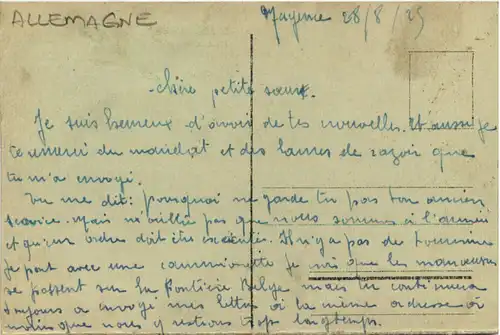 ALLEMAGNE
Mayence 28/8/25
Chère petite sœur.
Je suis heureux d'avoir de tes nouvelles. Et aussi je
te remerci du mandat et des lames de razoir que
tu m'a envoyé.
Tu me dit: pourquoi ne garde tu pas ton ancien
service. Mais n'oublie pas que nous sommes à l'armée
et qu'un ordre doit être executée. Il n'y a pas de
Je part avec une camionnette je que les manœuvres
se passent sur la frontière Belge mais tu continuera
toujours a envoyé mes lettres à la même adresse à
moins que nous y restions trop longtemps.